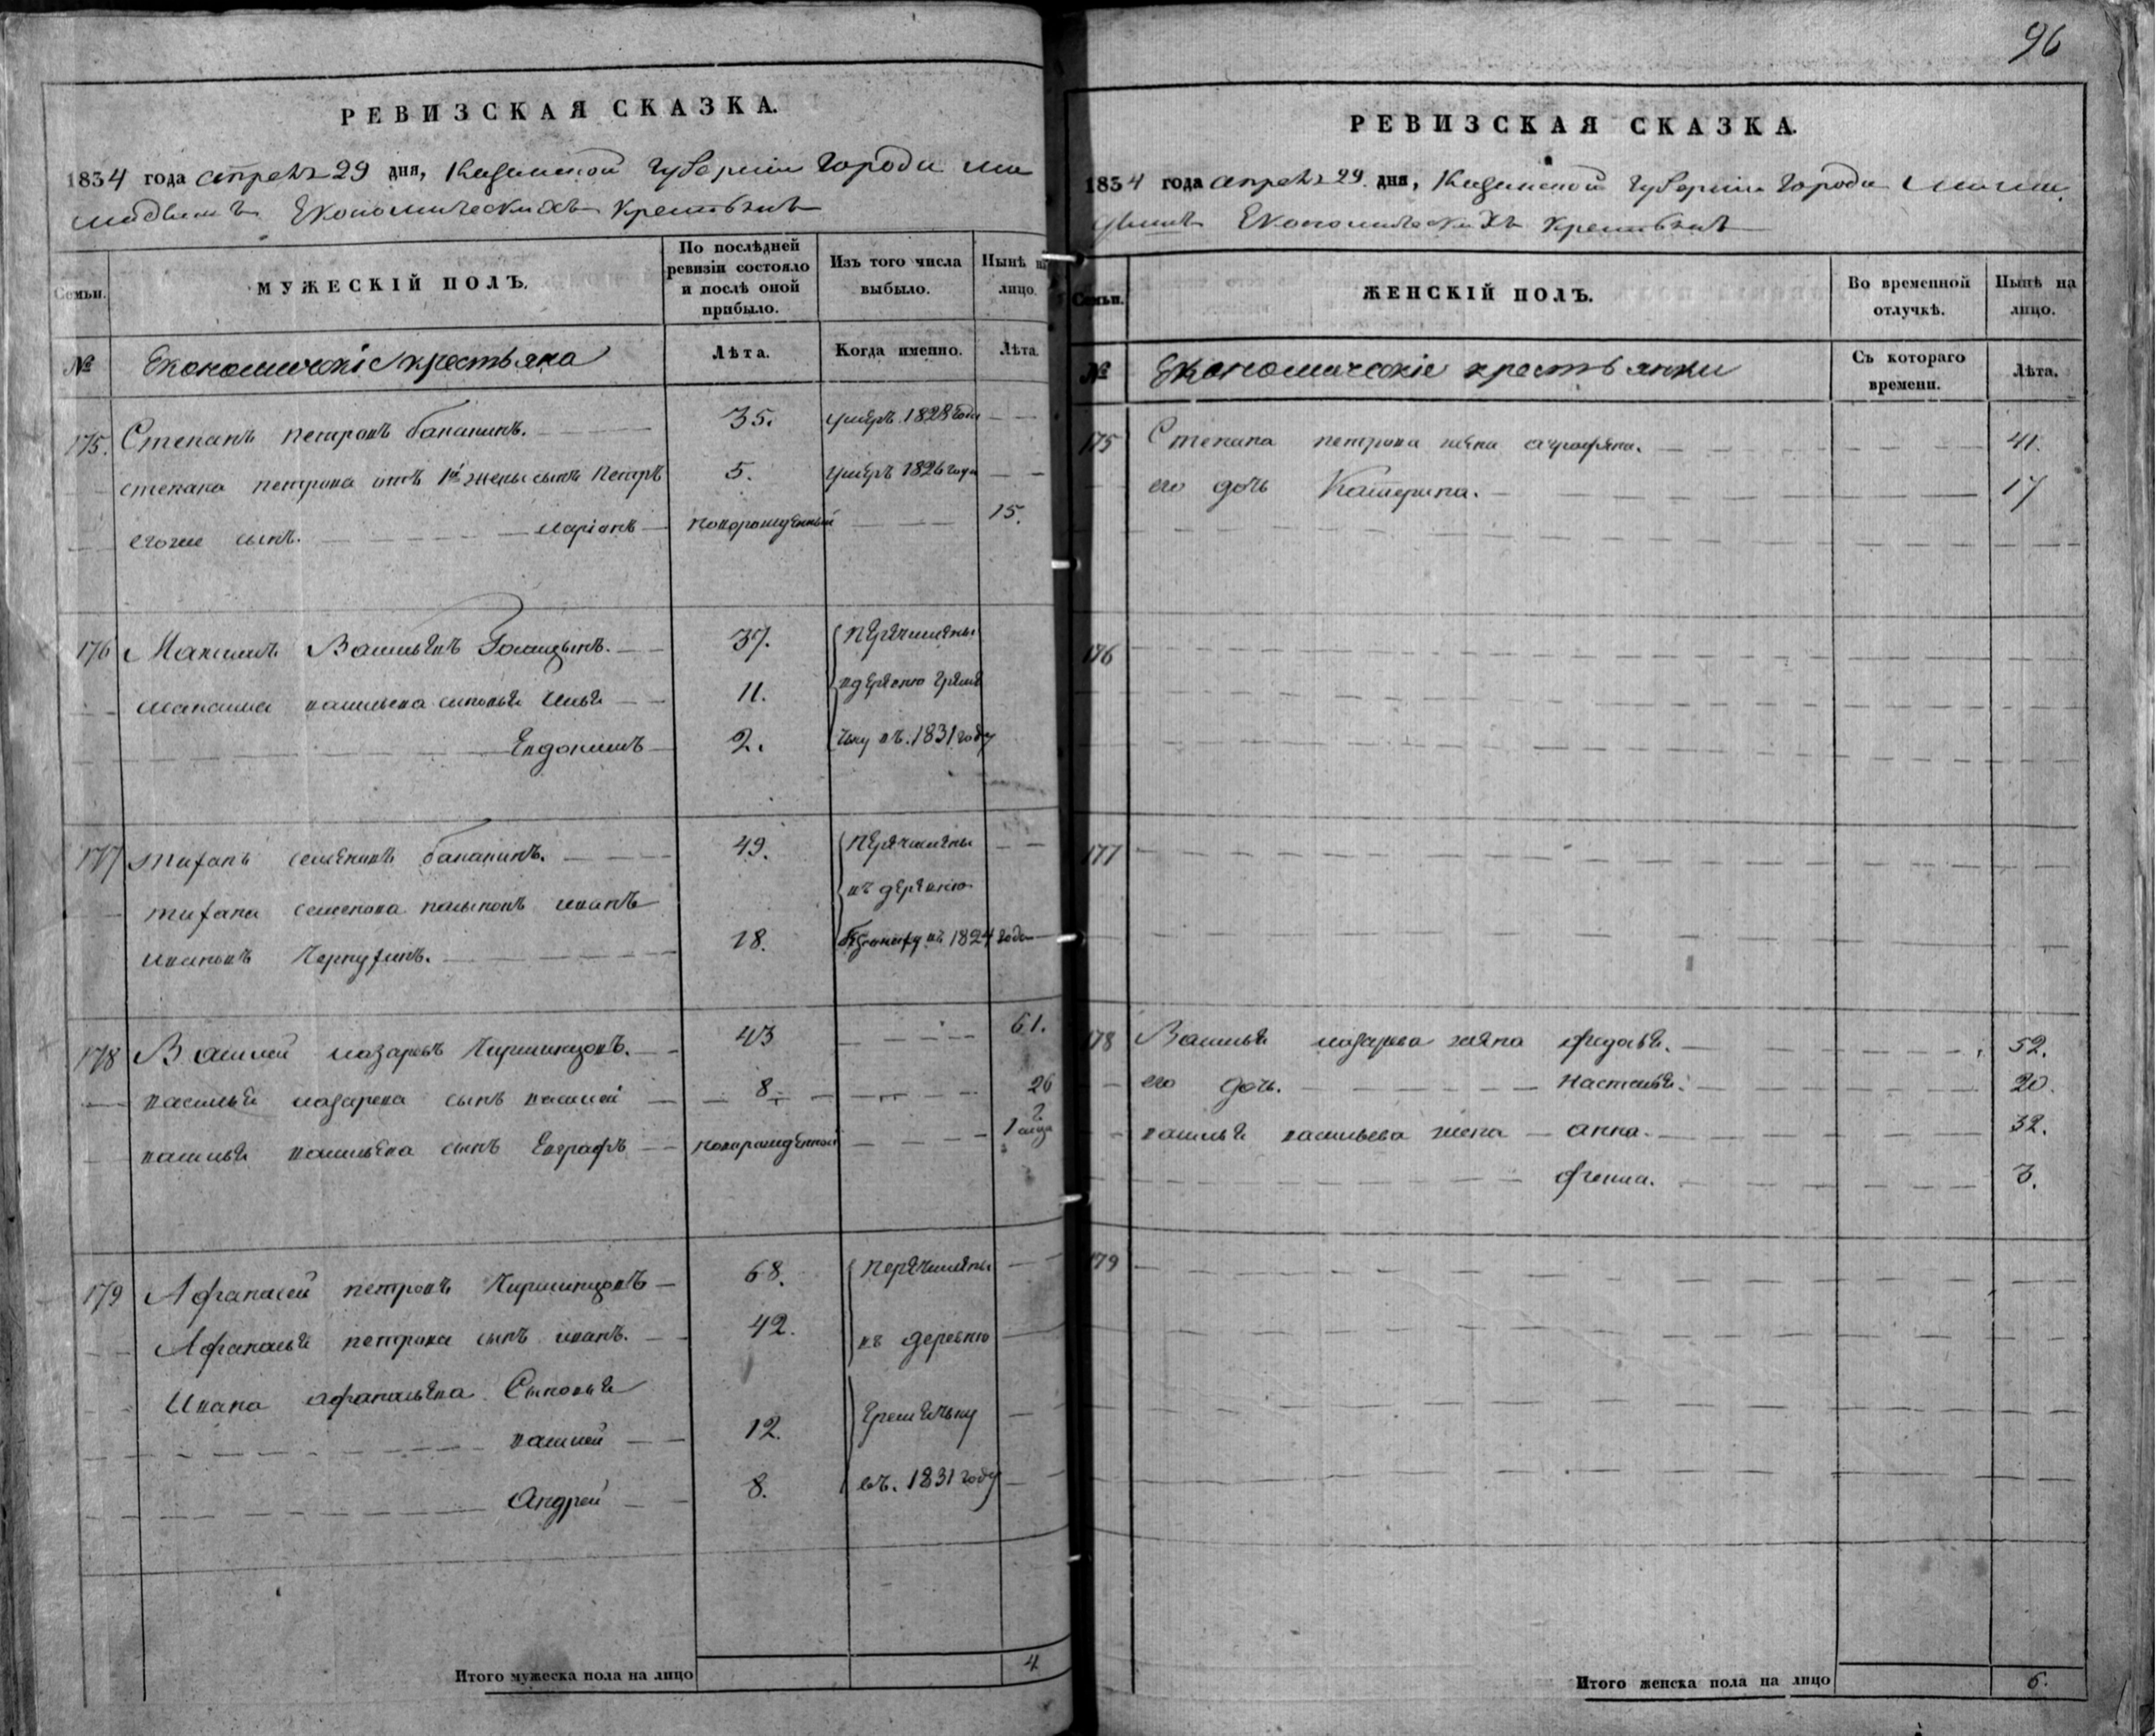 96
РЕВИЗСКАЯ СКАЗКА.
1834 года апреля 29 дня, Казанской Губернии Города Ма
мадыша Экономическихъ крестьянъ
Семьи.
МУЖЕСКІЙ ПОЛЪ.
По послѣдней ревизіи состояло и послѣ оной прибыло.
Изъ того числа выбыло.
Нынѣ на лицо.
№ Экономическіе крестьяна
Лѣта.
Когда именно.
Лѣта.
175. Степанъ петровъ баканинъ. 35. умеръ 1828 года
степана петрова отъ 1й жены сынъ петръ 5. умеръ 1826 года
егоже сынъ. маріанъ новорожденный 15.
176 Максимъ Васильевъ 37. перечислены
максима васильева сыновья илья 11. вдеревню
Евдокимъ 2. въ. 1831 году
177 семеновъ баканинъ. 49. перечислены
семенова иванъ въ деревню
18. въ 1824 года
178 Василей лазаревъ 43 61.
василья лазарева сынъ василей 8. 26
василья васильева сынъ Евграфъ новорожденной 1
179 Афанасей петровъ 68. перечислены
Афанасья петрова сынъ иванъ. 42. въ деревню
Ивана афанасьева Сыновья
василей 12.
Андрей 8. въ. 1831 году
Итого мужеска пола на лицо 4
РЕВИЗСКАЯ СКАЗКА.
1834 года апреля 29 дня, Казанской Губернии Города Мама
дыша Экономическихъ крестьянъ
Семьи.
ЖЕНСКІЙ ПОЛЪ.
Во временной отлучкѣ.
Нынѣ на лицо.
№ Экономическіе крестьянки
Съ котораго времени.
Лѣта.
175 Степана петрова жена 41.
его дочь Катерина. 17
176
177
178 Василья лазарева жена федосья. 52.
его дочь. настасья. 20.
василья васильева жена анна. 32.
3.
179
Итого женска пола на лицо 6.